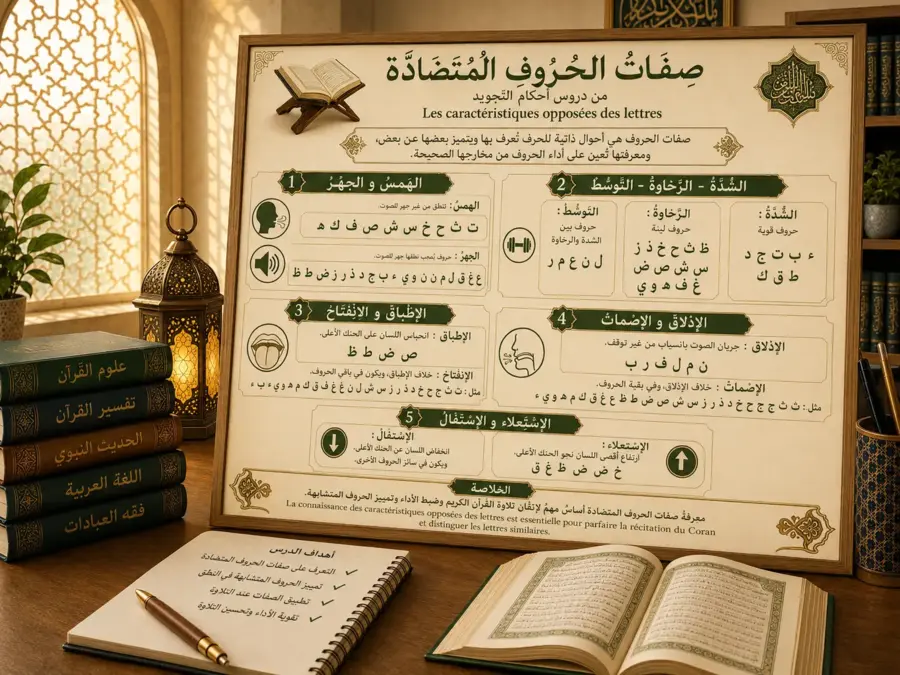 صِفَاتُ الحُرُوفِ المُتَضَادَّة
من دروس أحكام التّجويد
Les caractéristiques opposées des lettres
صفات الحروف هي أحوال ذاتية للحرف تُعرف بها ويتميز بعضها عن بعض،
ومعرفتها تُعين على أداء الحروف من مخارجها الصحيحة.
1 الهَمسُ و الجهْرُ
الهمسُ: تنطق من غير جهر للصوت.
ت ث ح خ س ش ص ف ك ه
الجهرُ:
2 الشدَّةُ - الرَّخاوةُ - التَّوسُّطُ
الشِّدَّةُ:
حروف قوية
ء ب ت ج د
ط ق ك
الرَّخاوةُ:
حروف لينة
ظ ث ح خ ذ ز
س ش ص ض
غ ف ه و ي
التَّوسُّطُ:
حروف بين
الشدة والرخاوة
ل ن ع م ر
3 الإطْباقُ و الانْفتَاحُ
الإطباقُ: انحباس اللسان على الحنك الأعلى.
ص ض ط ظ
الإنفتَاحُ: خلاف الإطباق، ويكون في باقي الحروف.
4 الإذلاقُ و الإصْماتُ
الإذلاقُ: جريان الصوت بانسياب من غير توقف.
ن م ل ف ر ب
الإصْماتُ: خلاف الإذلاق، وفي بقية الحروف.
5 الإسْتِعلاء و الإسْتفَالُ
الإسْتِعلاء:
أرتفاع أقصى اللسان نحو الحنك الأعلى.
خ ض ض ظ غ ق
الإسْتفَالُ:
انخفاض اللسان عن الحنك الأعلى.
ويكون في سائر الحروف الأخرى.
الخلاصة
معرفة صفات الحروف المتضادة أساسٌ مهمٌ لإتقان تلاوة القرآن الكريم وضبط الأداء وتمييز الحروف المتشابهة.
La connaissance des caractéristiques opposées des lettres est essentielle pour parfaire la récitation du Coran
et distinguer les lettres similaires.
علوم القرآن
تفسير القرآن
الحديث النبوي
اللغة العربية
فقه العبادات
أهداف الدرس
✓ التعرف على صفات الحروف المتضادة
✓ تمييز الحروف المتشابهة في النطق
✓ تطبيق الصفات عند التلاوة
✓ تقوية الأداء وتحسين التلاوة